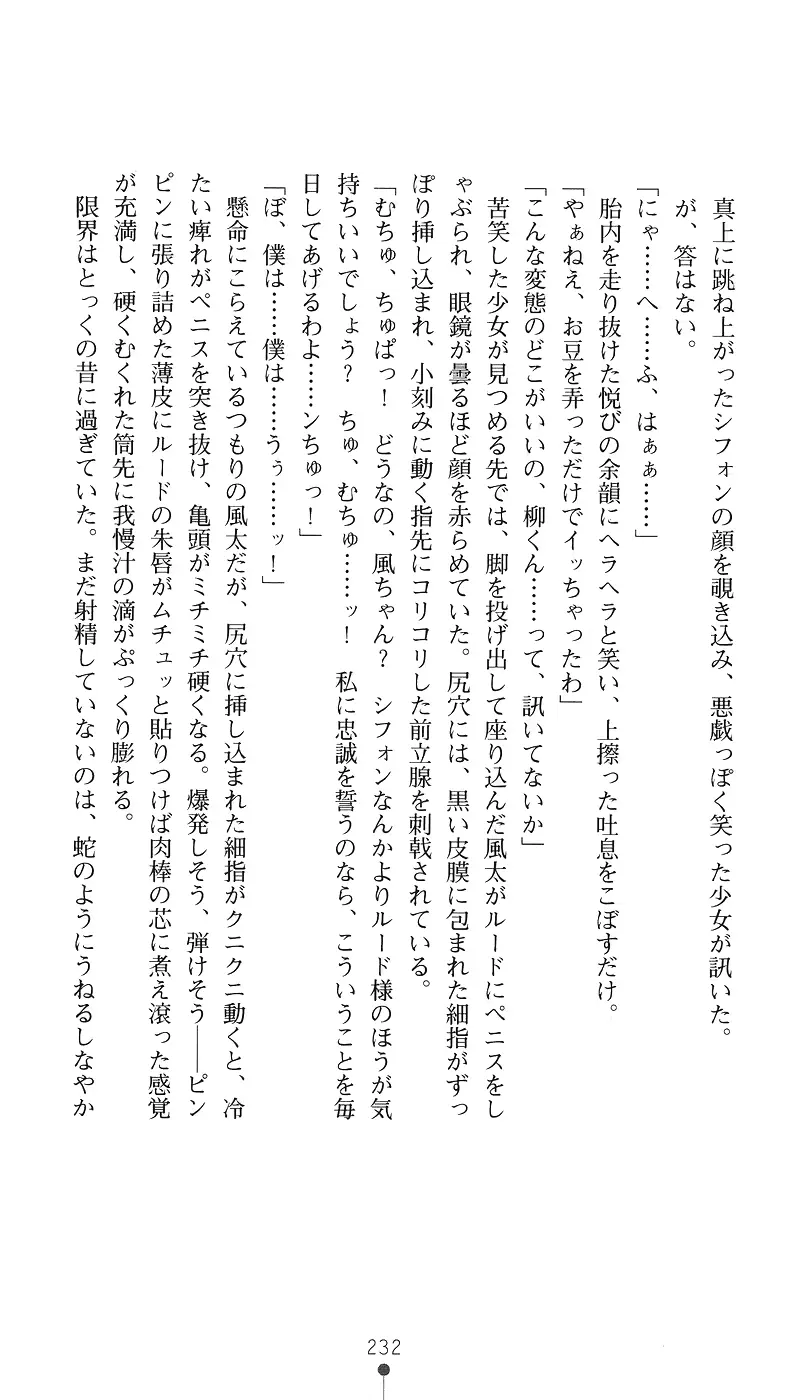 真上に跳ね上がったシフォンの顔を覗き込み、悪戯っぽく笑った少女が訊いた。
が、答はない。
「にゃ……へ……ふ、はぁぁ……」
胎内を走り抜けた悦びの余韻にヘラヘラと笑い、上擦った吐息をこぼすだけ。
「やぁねえ、お豆を弄っただけでイッちゃったわ」
「こんな変態のどこがいいの、柳くん……って、訊いてないか」
苦笑した少女が見つめる先では、脚を投げ出して座り込んだ風太がルードにペニスをし
ゃぶられ、眼鏡が曇るほど顔を赤らめていた。尻穴には、黒い皮膜に包まれた細指がずっ
ぽり挿し込まれ、小刻みに動く指先にコリコリした前立腺を刺戟されている。
「むちゅ、ちゅぱっ！　どうなの、風ちゃん？　シフォンなんかよりルード様のほうが気
持ちいいでしょう？　ちゅ、むちゅ……ッ！　私に忠誠を誓うのなら、こういうことを毎
日してあげるわよ……ンちゅっ！」
「ぼ、僕は……僕は……うぅ……ッ！」
懸命にこらえているつもりの風太だが、尻穴に挿し込まれた細指がクニクニ動くと、冷
たい痺れがペニスを突き抜け、亀頭がミチミチ硬くなる。爆発しそう、弾けそう――ピン
ピンに張り詰めた薄皮にルードの朱唇がムチュッと貼りつけば肉棒の芯に煮え滾った感覚
が充満し、硬くむくれた筒先に我慢汁の滴がぷっくり膨れる。
限界はとっくの昔に過ぎていた。まだ射精していないのは、蛇のようにうねるしなやか
232